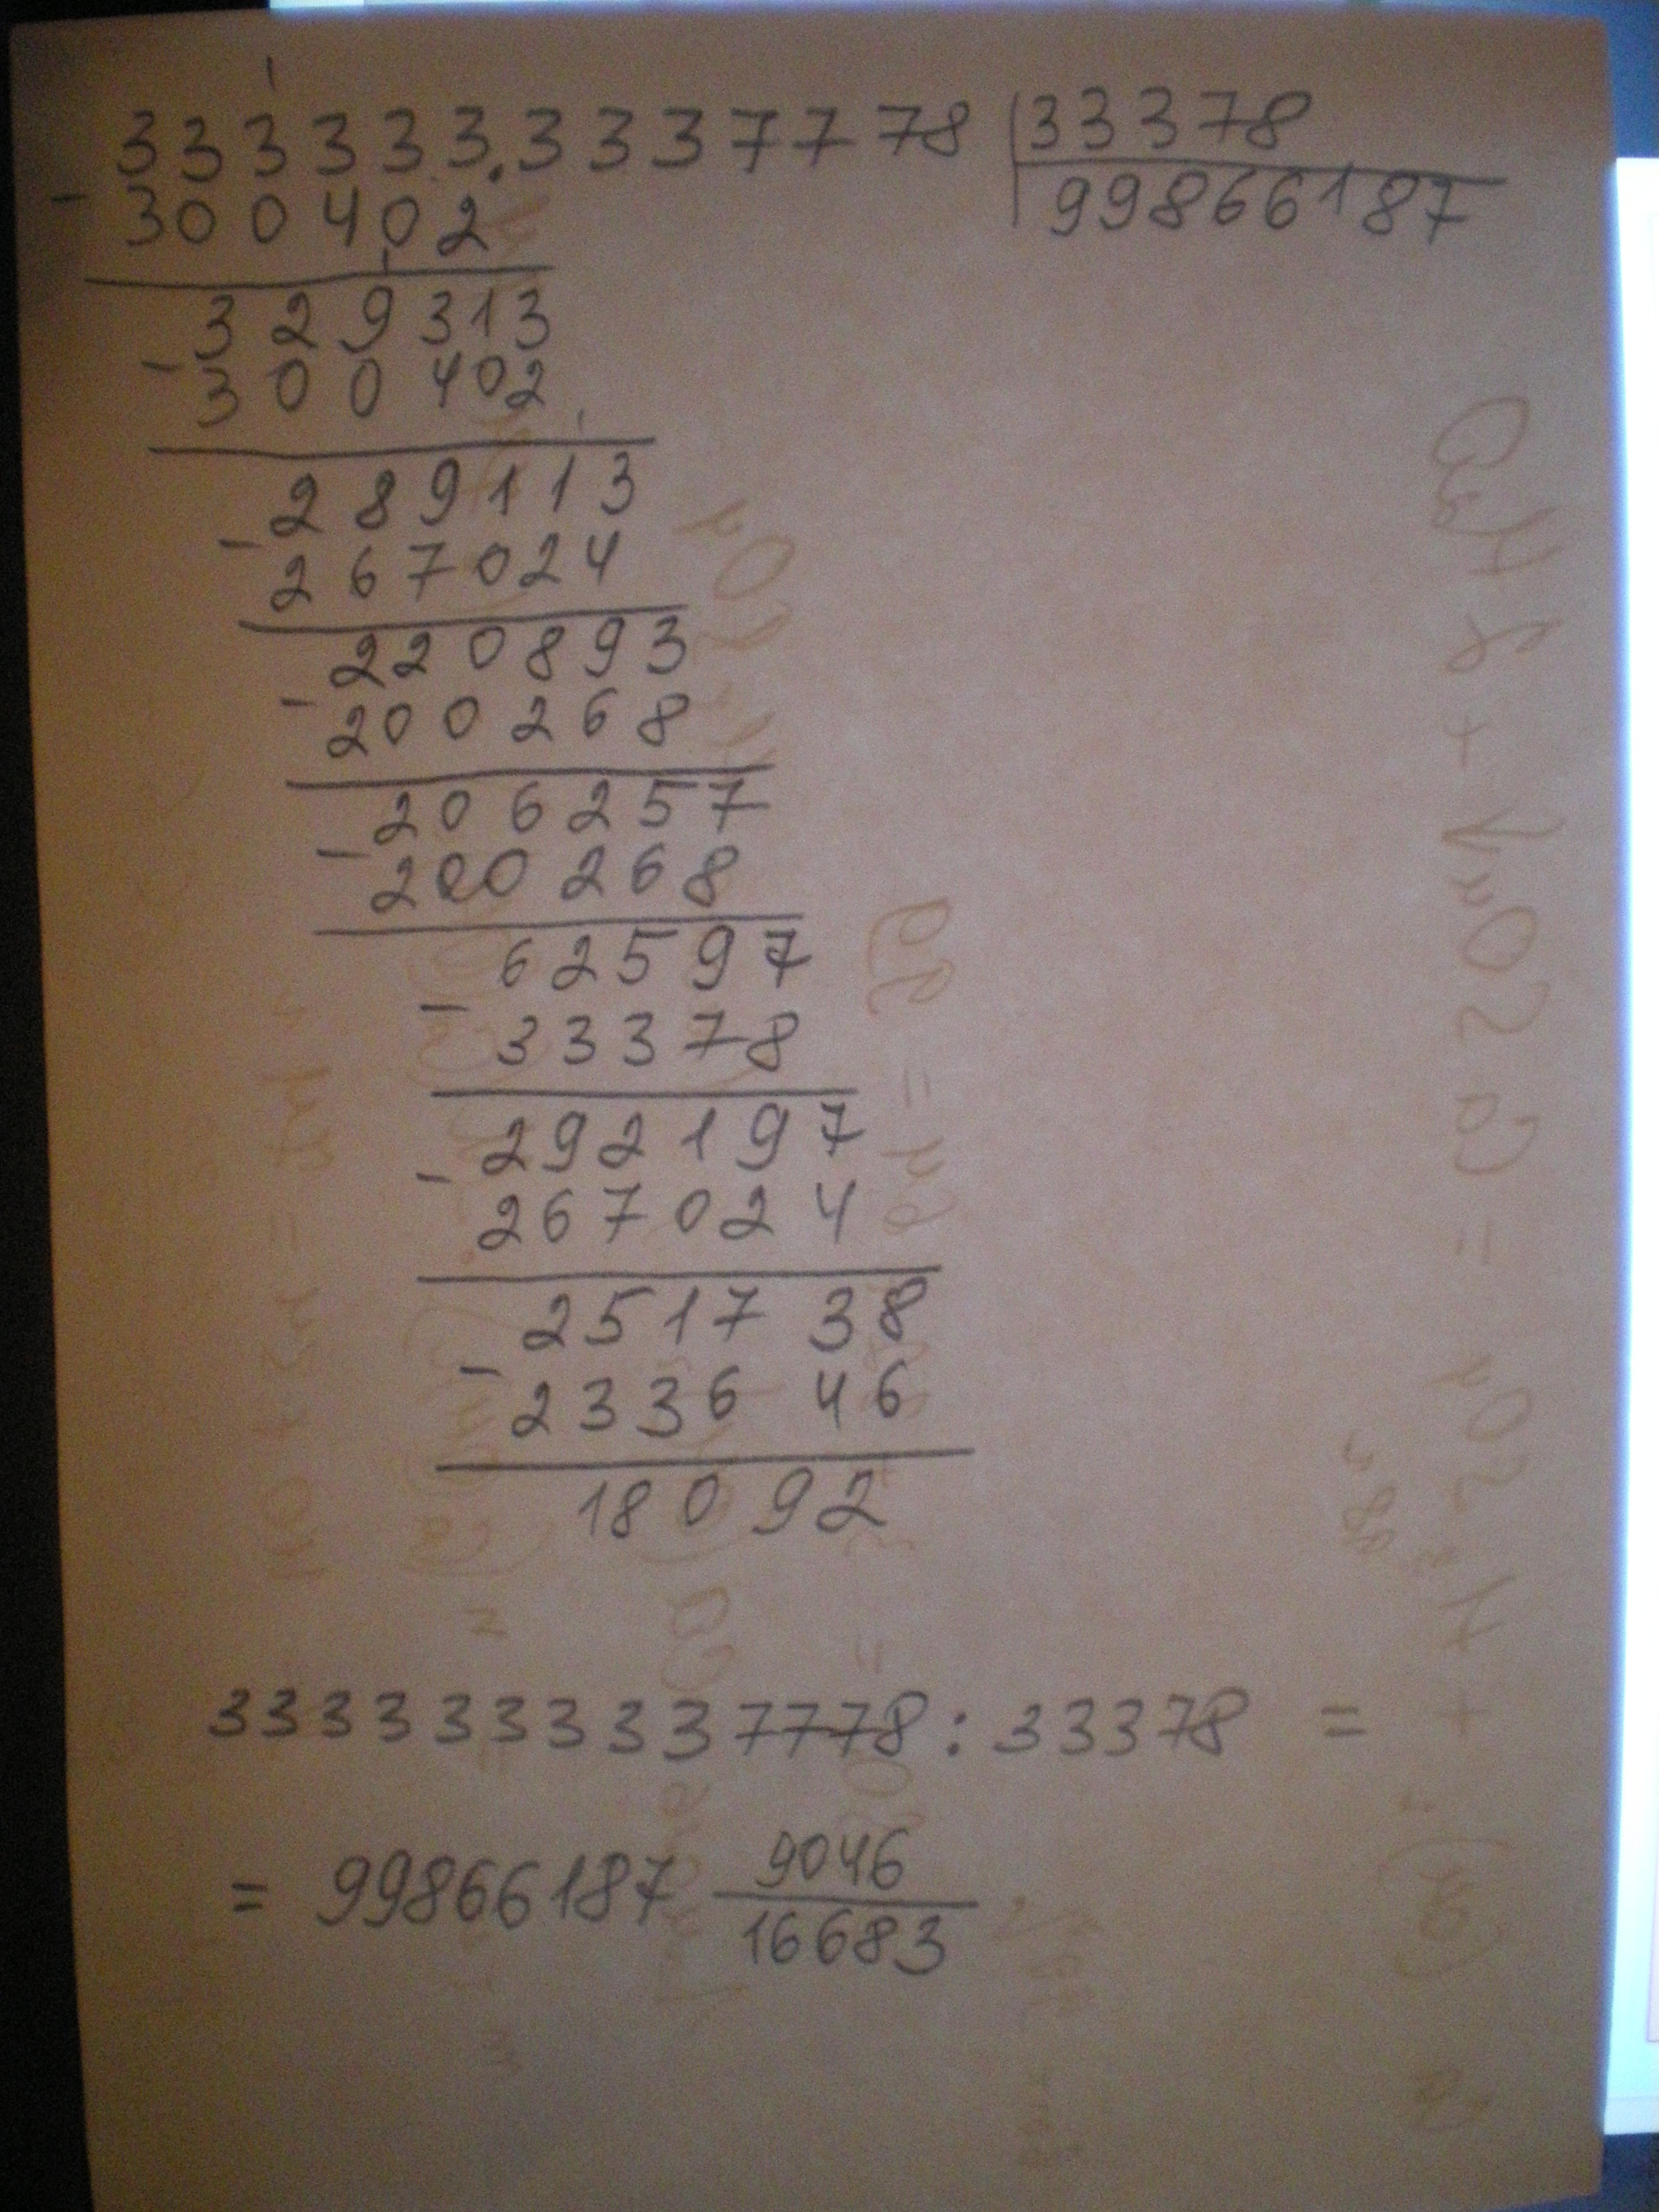 333333.3337778 |33378
- 300402 99866187
329313
- 300402
289113
- 267024
220893
- 200268
206257
- 200268
62597
- 33378
292197
- 267024
251738
- 233646
18092
3333333337778 : 33378 =
= 99866187 9046/16683